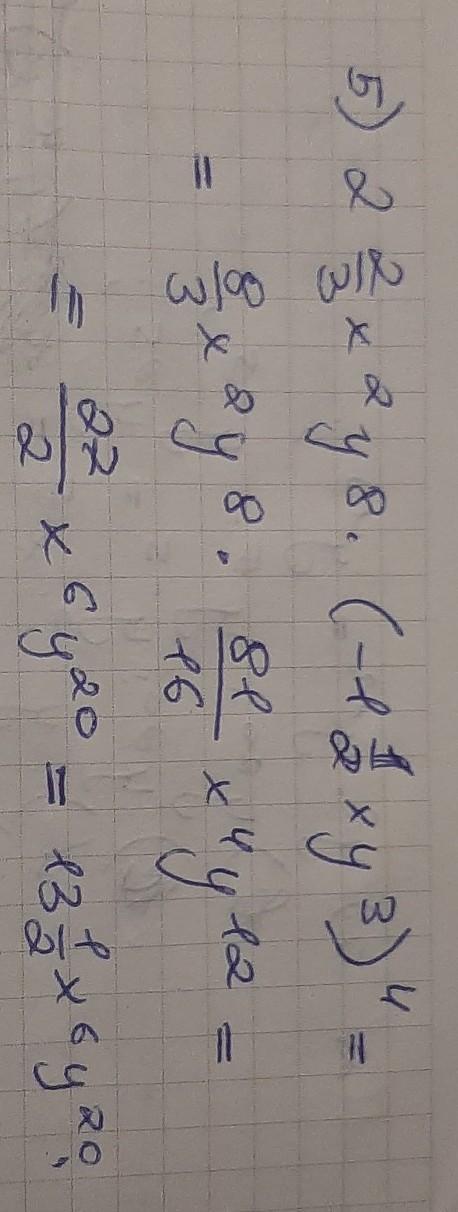 5) 2 2/3 x² y⁸ · (-1 1/2 x y³)⁴ =
= 8/3 x² y⁸ · 81/16 x⁴ y¹² =
= 27/2 x⁶ y²⁰ = 13 1/2 x⁶ y²⁰;